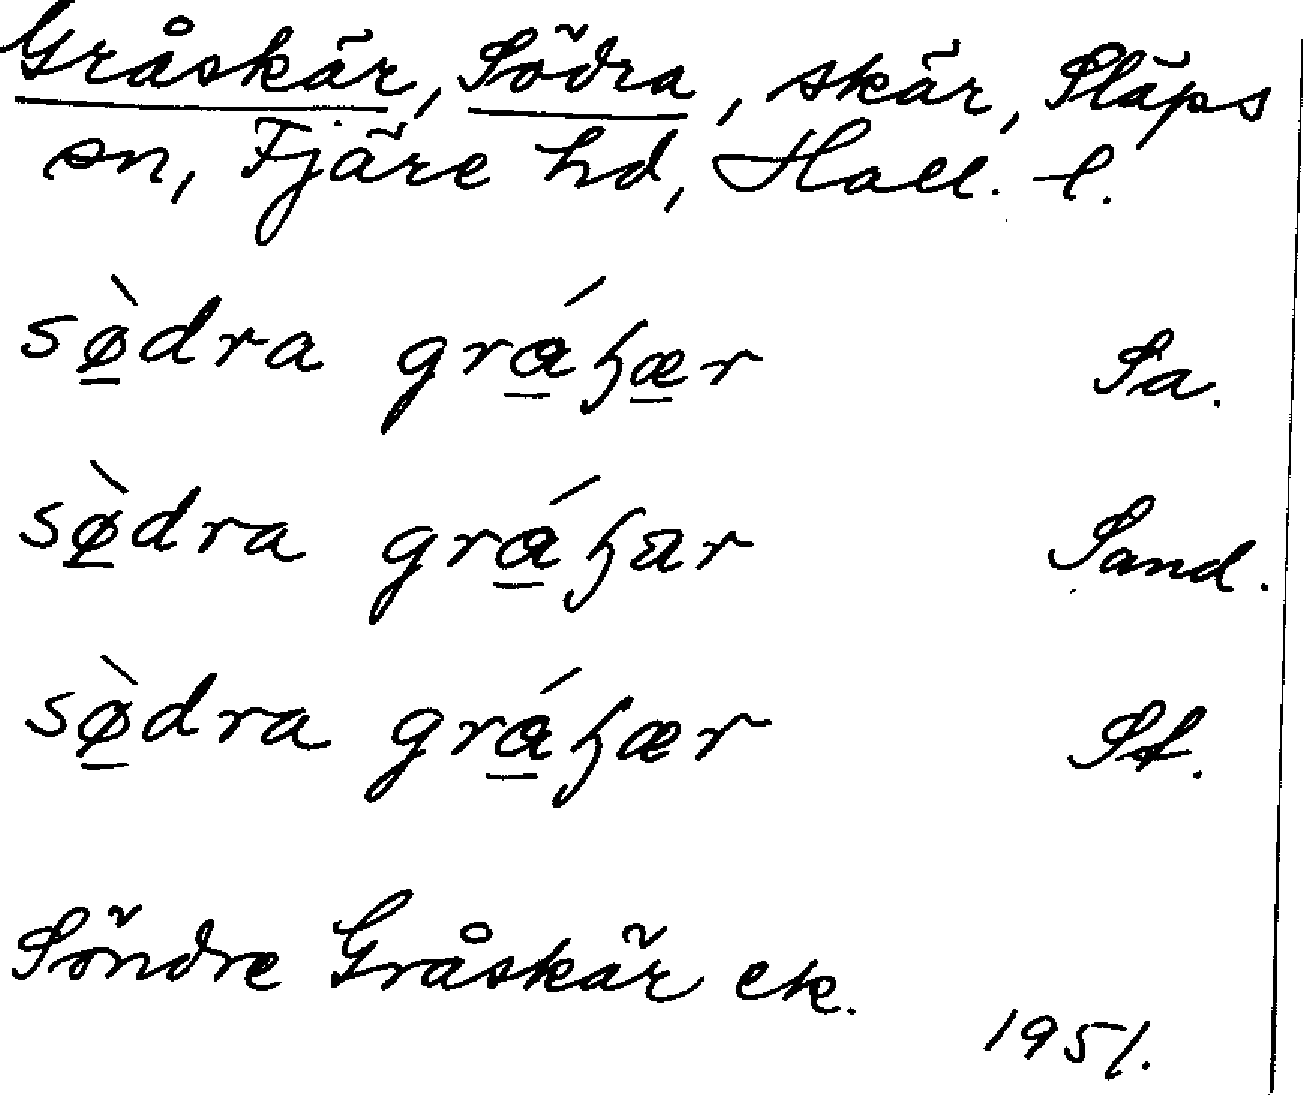 Gråskär, Södra, skär, Släps
sn, Fjäre hd, Hall. l.
sø̱̀dra grá̱ꜧæ̱r Sa.
sø̱̀dra grá̱ꜧar Sand.
sø̱̀dra grá̱ꜧær St.
Söndre Gråskär ek.
1951.